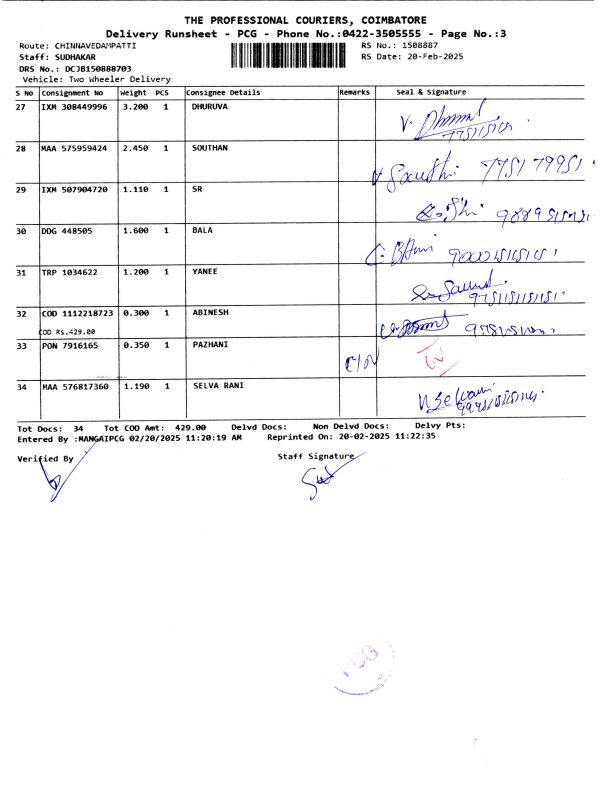 THE PROFESSIONAL COURIERS, COIMBATORE
Delivery Runsheet - PCG - Phone No.:0422-3505555 - Page No.:3
Route: CHINNAVEDAMPATTI RS No.: 1508887
Staff: SUDHAKAR RS Date: 20-Feb-2025
DRS No.: DCJB150888703
Vehicle: Two Wheeler Delivery
S No Consignment No Weight PCS Consignee Details Remarks Seal & Signature
27 IXM 308449996 3.200 1 DHURUVA
28 MAA 575959424 2.450 1 SOUTHAN
29 IXM 507904720 1.110 1 SR
30 DDG 448505 1.600 1 BALA
31 TRP 1034622 1.200 1 YANEE
32 COD 1112218723 0.300 1 ABINESH
COD RS.429.00
33 PON 7916165 0.350 1 PAZHANI
34 MAA 576817360 1.190 1 SELVA RANI
Tot Docs: 34 Tot COD Amt: 429.00 Delvd Docs: Non Delvd Docs: Delvy Pts:
Entered By :MANGAIPCG 02/20/2025 11:20:19 AM Reprinted On: 20-02-2025 11:22:35
Verified By Staff Signature
PCG